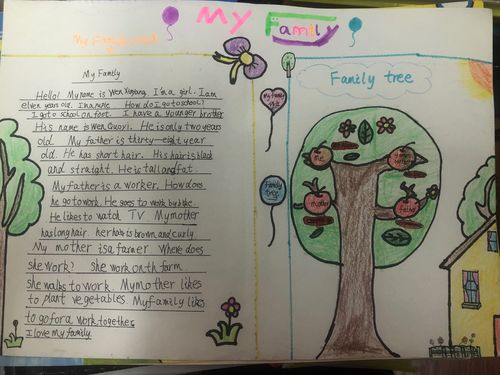 My Family
My Family
Hello! My name is Wen Xuyang. I'm a girl. I am
eleven years old. How do I go to school?
I go to school on foot. I have a younger brother
His name is Wen Guoxi. He is only two years
old. My father is thirty-eight year
old. He has short hair. His hair is black
and straight. He is tall and fat.
My father is a worker. How does
he go to work. He goes to work by bike
He likes to watch TV My mother
has long hair. her hair is brown and curly
My mother is a farmer Where does
she work? She work on th farm.
she walks to work. My mother likes
to plant vegetables. My family likes
to go for a work together
I love my family.
My family
Family tree
Family tree
me
younger brother
mother
father